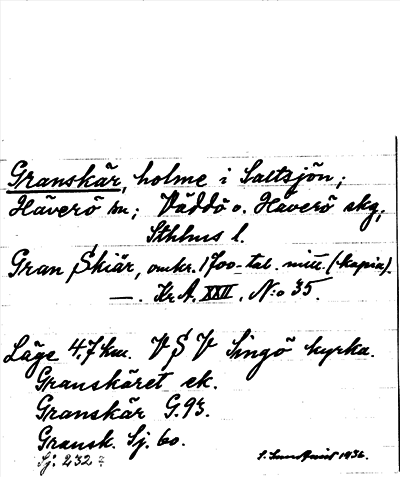 Granskär, holme i Saltsjön;
Häverö sn; Väddö o. Häverö skg;
Sthlms l.
Gran Skiär, omkr. 1700-tal. mitt. (kopia).
—. Kr. A. XXII. N:o 35.
Läge 4,7 km. V S V Singö kyrka.
Granskäret ek.
Granskär G. 93.
Gransk. Sj. 60.
Sj. 232
1936.